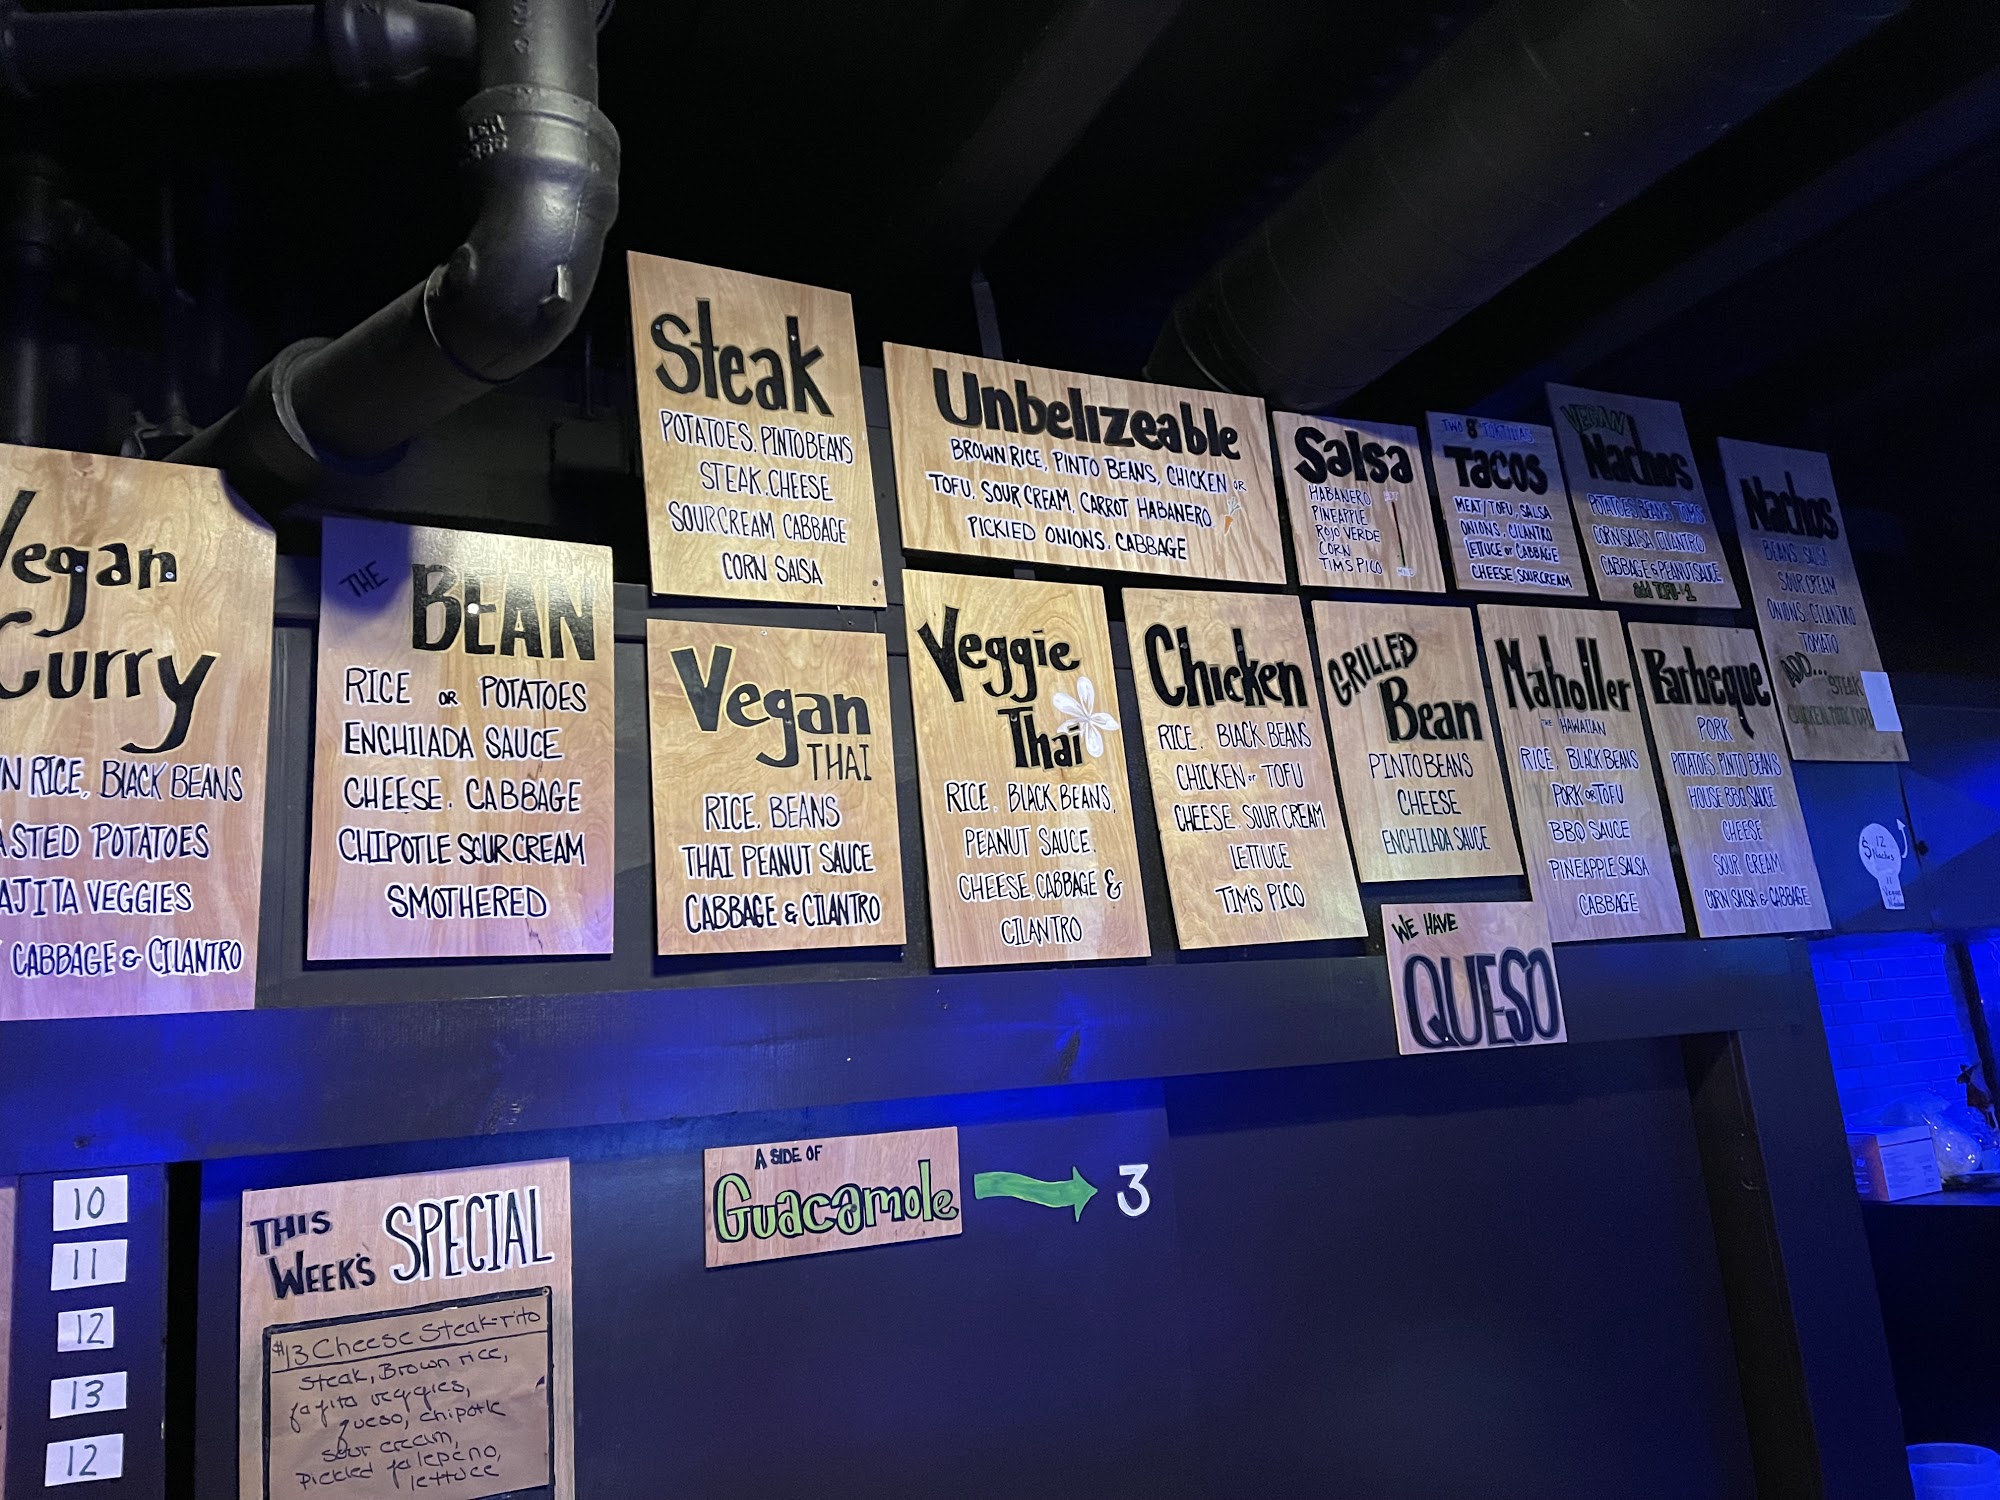 Vegan
Curry
N RICE, BLACK BEANS
ASTED POTATOES
AJITA VEGGIES
CABBAGE & CILANTRO
THE
BEAN
RICE OR POTATOES
ENCHILADA SAUCE
CHEESE. CABBAGE
CHIPOTLE SOUR CREAM
SMOTHERED
Steak
POTATOES. PINTO BEANS
STEAK. CHEESE
SOUR CREAM CABBAGE
CORN SALSA
Vegan
THAI
RICE. BEANS
THAI PEANUT SAUCE
CABBAGE & CILANTRO
Unbelizeable
BROWN RICE, PINTO BEANS, CHICKEN OR
TOFU. SOUR CREAM, CARROT HABANERO
PICKLED ONIONS. CABBAGE
Veggie
Thai
RICE. BLACK BEANS,
PEANUT SAUCE.
CHEESE. CABBAGE &
CILANTRO
Chicken
RICE. BLACK BEANS
CHICKEN or TOFU
CHEESE. SOUR CREAM
LETTUCE
TIM'S PICO
Salsa
HABANERO HOT
PINEAPPLE
ROJO VERDE
CORN
TIM'S PICO MILD
GRILLED
Bean
PINTO BEANS
CHEESE
ENCHILADA SAUCE
TWO 8" TORTILLAS
TACOS
MEAT/TOFU, SALSA
ONIONS, CILANTRO
LETTUCE or CABBAGE
CHEESE, SOUR CREAM
Maholler
THE HAWAIIAN
RICE. BLACK BEANS
PORK OR TOFU
BBQ SAUCE
PINEAPPLE SALSA
CABBAGE
VEGAN
Nachos
POTATOES. BEANS
CORN SALSA CILANTRO
CABBAGE & PEANUT SAUCE
add TOFU-1
Barbeque
PORK
POTATOES. PINTO BEANS
HOUSE BBQ SAUCE
CHEESE
SOUR CREAM
CORN SALSA & CABBAGE
Nachos
BEANS. SALSA
SOUR CREAM
ONIONS. CILANTRO
TOMATO
ADD... STEAK
$12
Nachos
11
WE HAVE
QUESO
10
11
12
13
12
THIS
WEEK'S SPECIAL
$13 Cheese Steak-rito
Steak, Brown rice,
fajita veggies,
queso, chipotle
sour cream,
pickled jalepeno,
lettuce
A SIDE OF
Guacamole 3